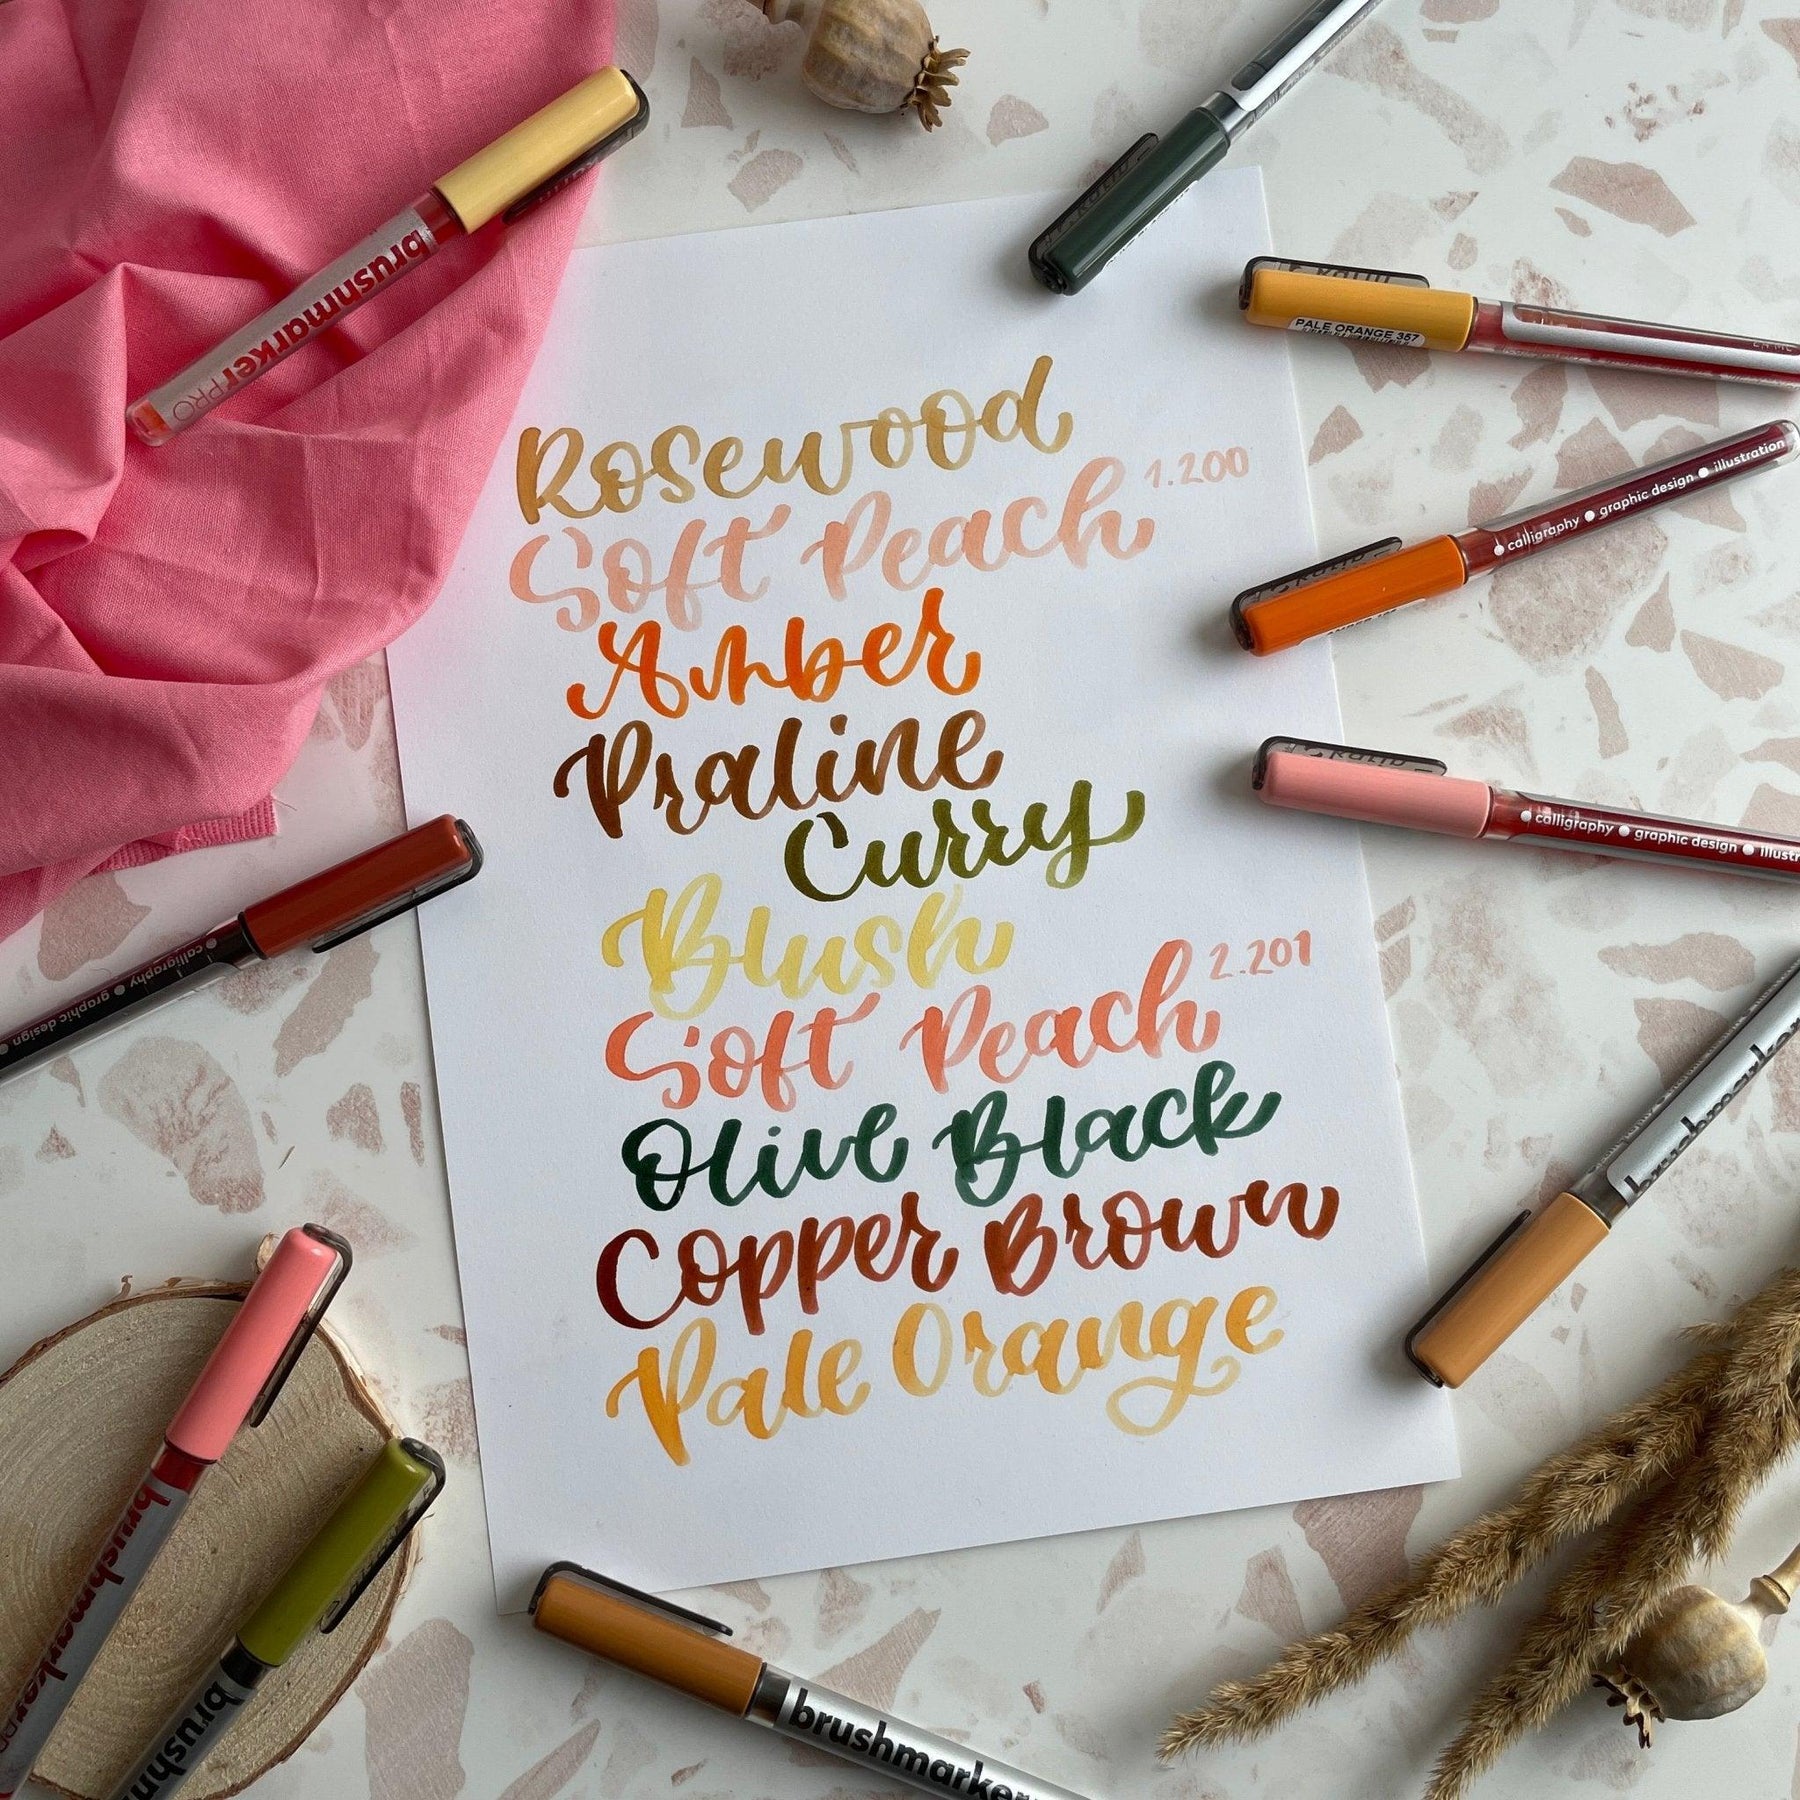 Rosewood
Soft Peach 1.200
Amber
Praline
Curry
Blush
Soft Peach 2.201
Olive Black
Copper Brown
Pale Orange
brushmarkerPRO
PALE ORANGE 357
calligraphy ● graphic design ● illustration
calligraphy ● graphic design ●
calligraphy ● graphic design
brushmarker
brushmarker
brushm
brushmarker